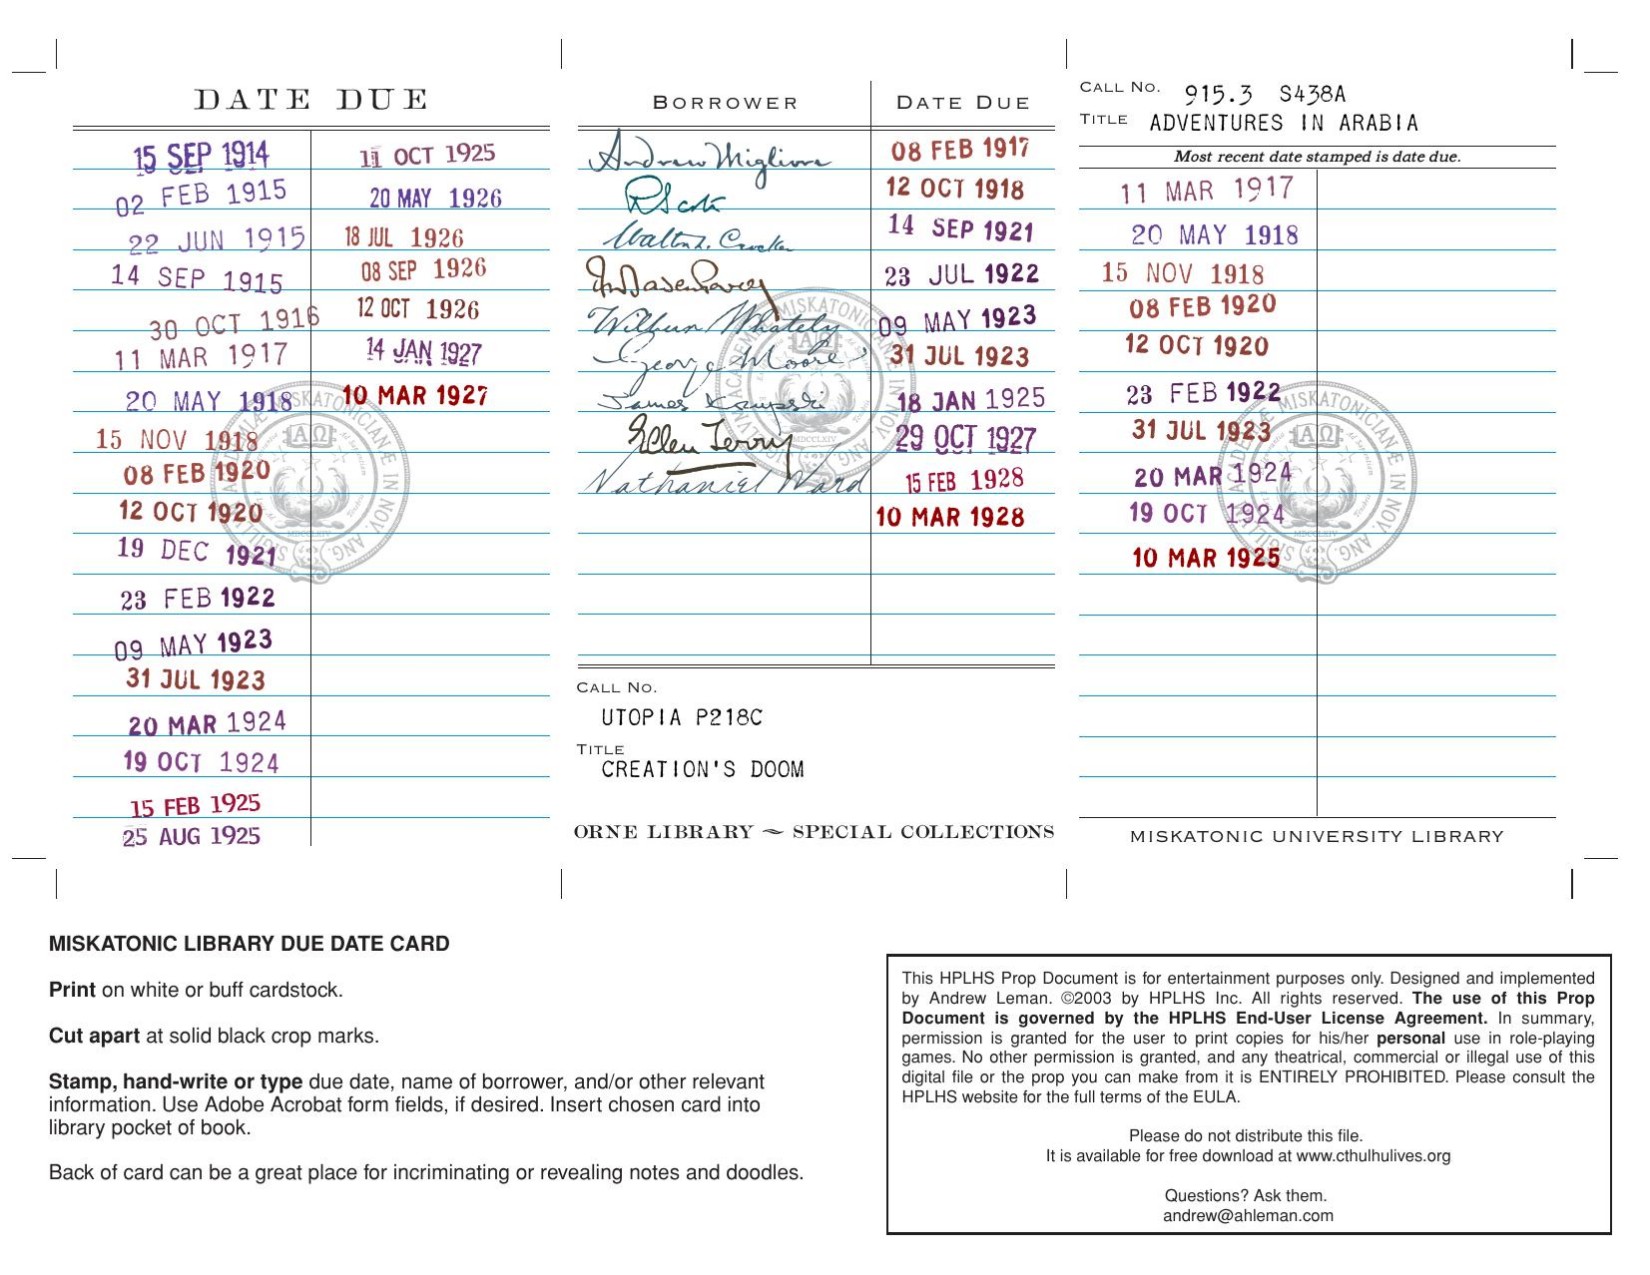 DATE DUE
15 SEP 1914
02 FEB 1915
22 JUN 1915
14 SEP 1915
30 OCT 1916
11 MAR 1917
20 MAY 1918
15 NOV 1918
08 FEB 1920
12 OCT 1920
19 DEC 1921
23 FEB 1922
09 MAY 1923
31 JUL 1923
20 MAR 1924
19 OCT 1924
15 FEB 1925
25 AUG 1925
11 OCT 1925
20 MAY 1926
18 JUL 1926
08 SEP 1926
12 OCT 1926
14 JAN 1927
10 MAR 1927
BORROWER DATE DUE
Andrew Migliore 08 FEB 1917
RScott 12 OCT 1918
Walton L. Crocker 14 SEP 1921
23 JUL 1922
Wilbur Whately 09 MAY 1923
George Moore 31 JUL 1923
James 18 JAN 1925
Ellen Terry 29 OCT 1927
Nathaniel Ward 15 FEB 1928
10 MAR 1928
CALL NO.
UTOPIA P218C
TITLE
CREATION'S DOOM
ORNE LIBRARY ~ SPECIAL COLLECTIONS
CALL NO. 915.3 S438A
TITLE ADVENTURES IN ARABIA
Most recent date stamped is date due.
11 MAR 1917
20 MAY 1918
15 NOV 1918
08 FEB 1920
12 OCT 1920
23 FEB 1922
31 JUL 1923
20 MAR 1924
19 OCT 1924
10 MAR 1925
MISKATONIC UNIVERSITY LIBRARY
MISKATONIC LIBRARY DUE DATE CARD
Print on white or buff cardstock.
Cut apart at solid black crop marks.
Stamp, hand-write or type due date, name of borrower, and/or other relevant
information. Use Adobe Acrobat form fields, if desired. Insert chosen card into
library pocket of book.
Back of card can be a great place for incriminating or revealing notes and doodles.
This HPLHS Prop Document is for entertainment purposes only. Designed and implemented
by Andrew Leman. ©2003 by HPLHS Inc. All rights reserved. The use of this Prop
Document is governed by the HPLHS End-User License Agreement. In summary,
permission is granted for the user to print copies for his/her personal use in role-playing
games. No other permission is granted, and any theatrical, commercial or illegal use of this
digital file or the prop you can make from it is ENTIRELY PROHIBITED. Please consult the
HPLHS website for the full terms of the EULA.
Please do not distribute this file.
It is available for free download at www.cthulhulives.org
Questions? Ask them.
andrew@ahleman.com